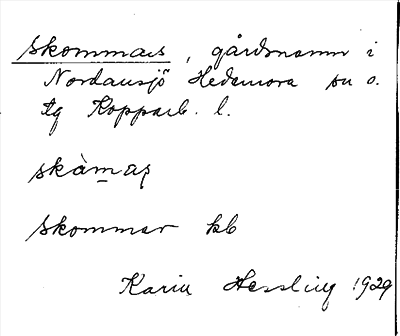 Skommars, gårdsnamn i
Nordansjö Hedemora sn o.
tg Kopparb. l.
skàmaş
Skommar kb
Karin Hessling 1929